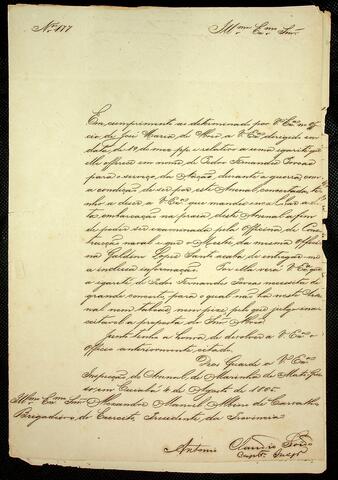 Nº 177
Illmo Exmo Snr.
Em cumprimento ao determinado por V. Exª no offi
cio de José Maria de a V. Exª dirigido em
data de 10 do mez pp. e relativo a uma igarité que
elle offerece em nome de Pedro Fernandes
para o serviço da Nação, durante a guerra com
a condição de ser por este Arsenal concertada, te
nho a dizer a V. Exª que mandei encalhar a di
ta embarcação na praia deste Arsenal afim
de poder ser examinada pela Officina de Cons
trucção naval e que o Mestre da mesma offici
na Galdino Lopes acaba de entregar-me
a inclusa informação. Por ella verá V. Exª que
a igarité de Pedro Fernandes necessita de
grande concerto, para o qual não ha neste Arse
nal nem taboado nem pessoal pelo que julgo ina
ceitavel a proposta do Snr.
Junto tenho a honra de devolver a V. Exª o
officio anteriormente citado.
Deos Guarde a V. Exª
Inspecção do Arsenal de Marinha de Mato Gros
so, em Cuiabá 4 de Agosto de 1865.
Illmo Exmo Snr. Alexandre Manoel Albino de Carvalho
Brigadeiro do Exercito, Presidente da Provincia
Antonio Claudio